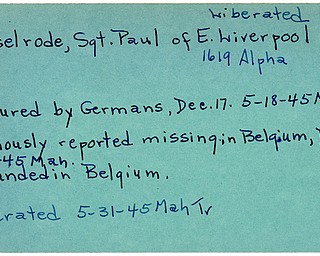 Liberated
selrode, Sgt. Paul of E. Liverpool
1619 Alpha
ured by Germans, Dec. 17. 5-18-45 M
iously reported missing in Belgium,
-45 Mah.
unded in Belgium.
erated 5-31-45 Mah Tr